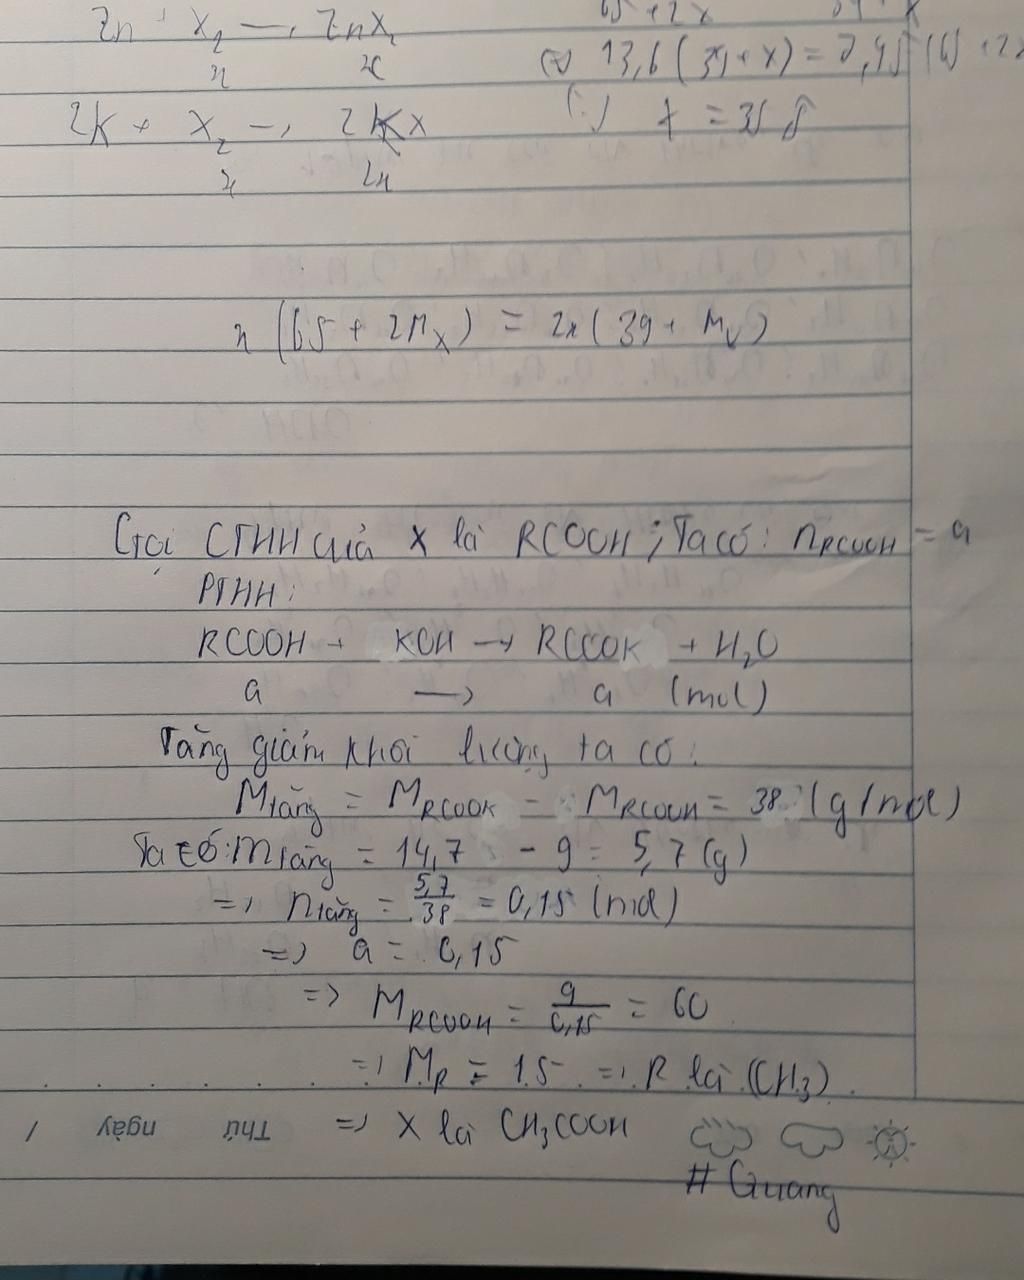 Zn + X₂ → ZnX₂
x x
65 + 2x
⇔ 13,6(39+x) = 7,45(65+2x
2K + X₂ → 2KX
x = 35,5
x 2x
x(65 + 2Mx) = 2x(39 + Mx)
Gọi CTHH của X là RCOOH; Ta có: nRCOOH = a
PTHH:
RCOOH + KOH → RCOOK + H₂O
a → a (mol)
Tăng giảm khối lượng ta có:
Mtăng = MRCOOK - MRCOOH = 38 (g/mol)
Ta có: mtăng = 14,7 - 9 = 5,7(g)
=> ntăng = 5,7/38 = 0,15 (mol)
=> a = 0,15
=> MRCOOH = 9/0,15 = 60
=> MR = 15 => R là (CH₃)
=> X là CH₃COOH
Thứ ngày /
# Quang